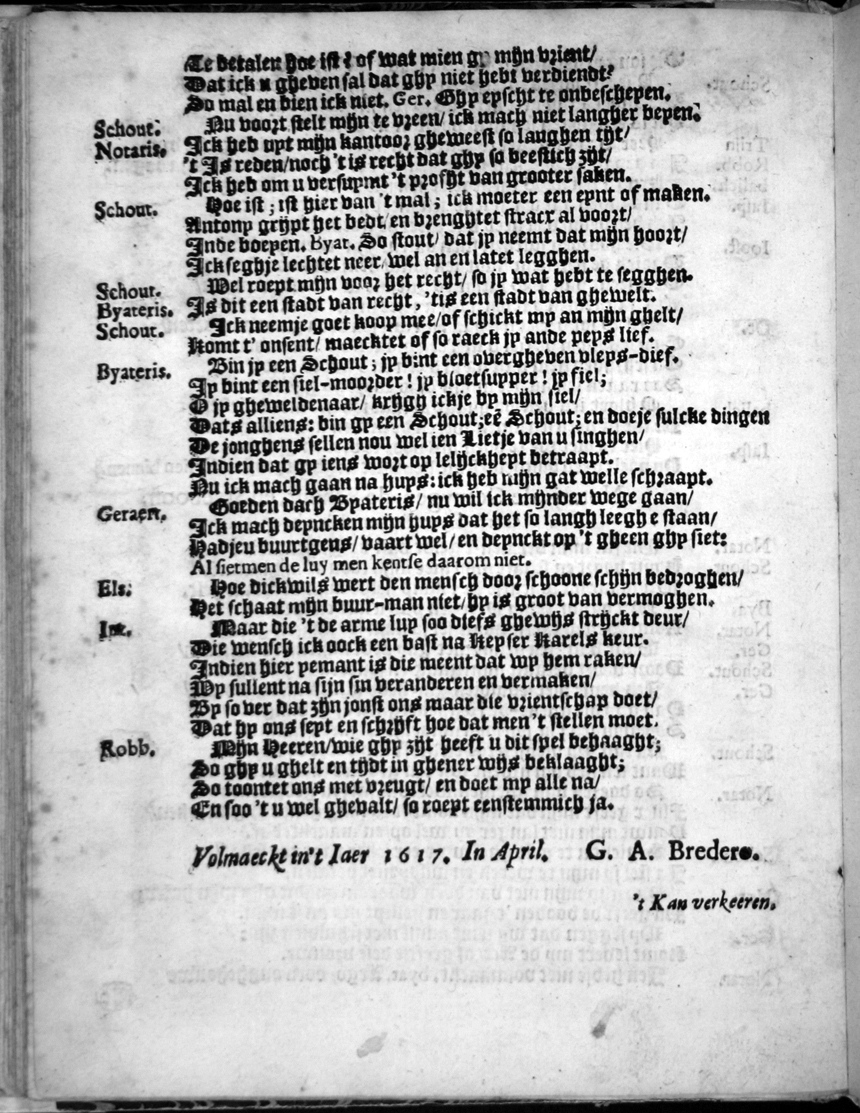 Te betalen hoe ist? of wat mien gy mijn vrient/
Dat ick u gheven sal dat ghy niet hebt verdiendt?
So mal en bien ick niet. Ger. Ghy eyscht te onbescheyen.
Schout. Nu voort stelt mijn te vreen/ ick mach niet langher beyen.
Notaris. Ick heb upt mijn kantoor gheweest so langhen tijt/
't Is reden/noch 't is recht dat ghy so beestich zijt/
Ick heb om u versuymt 't profijt van grooter saken.
Schout. Hoe ist ; ist hier van 't mal ; ick moeter een eynt of maken.
Antony grijpt het bedt/ en brenghtet stracx al voort/
Inde boeyen. Byat. So stout/ dat jy neemt dat mijn hoort/
Ick seghje lechtet neer/ wel an en latet legghen.
Schout. Wel roept mijn voor het recht/ so jy wat hebt te segghen.
Byateris. Is dit een stadt van recht, 'tis een stadt van ghewelt.
Schout. Ick neemje goet koop mee/of schickt my an mijn ghelt/
Komt t' onsent/ maecktet of so raeck jy ande peys lief.
Byateris. Bin jy een Schout ; jy bint een overgheven vleys-dief.
Jy bint een siel-moorder ! jy bloetsupper ! jy fiel;
O jy gheweldenaar/ krijgh ickje by mijn siel/
Dats alliens: bin gy een Schout;eẽ Schout; en doeje sulcke dingen
De jonghens sellen nou wel ien Lietje van u singhen/
Indien dat gy iens wort op lelijckheyt betraapt.
Nu ick mach gaan na huys: ick heb mijn gat welle schraapt.
Geraert. Goeden dach Byateris/ nu wil ick mijnder wege gaan/
Ick mach deyncken mijn huys dat het so langh leegh e staan/
Hadjeu buurtgens/ vaart wel/ en deynckt op 't gheen ghy siet:
Al sietmen de luy men kentse daarom niet.
Els. Hoe dickwils wert den mensch door schoone schijn bedroghen/
Het schaat mijn buur-man niet/ hy is groot van vermoghen.
Int. Maar die 't de arme luy soo diefs ghewijs strijckt deur/
Die wensch ick oock een bast na Keyser Karels keur.
Indien hier yemant is die meent dat wy hem raken/
Wy sullent na sijn sin veranderen en vermaken/
By so ver dat zijn jonst ons maar die vrientschap doet/
Dat hy ons seyt en schrijft hoe dat men 't stellen moet.
Robb. Mijn Heeren/wie ghy zijt heeft u dit spel behaaght;
So ghy u ghelt en tijdt in ghener wijs beklaaght;
So toontet ons met vreugt/ en doet my alle na/
En soo 't u wel ghevalt/ so roept eenstemmich ja.
Volmaeckt in't Iaer 1617. In April. G. A. Bredero.
't Kan verkeeren.